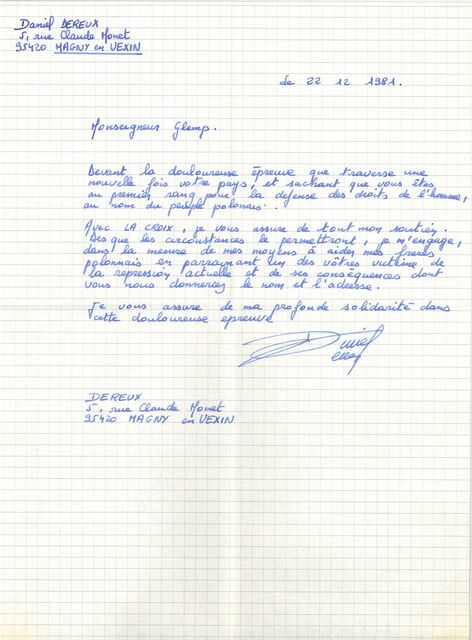 Daniel DEREUX
5, rue Claude Monet
95420 MAGNY en VEXIN
de 22 12 1981.
Monseigneur Glemp.
Devant la douloureuse épreuve que traverse une
nouvelle fois votre pays, et sachant que vous êtes
au premier rang pour la defense des droits de l'homme,
au nom du peuple polonais.
Avec LA CROIX, je vous assure de tout mon soutien.
Dès que les circonstances le permettront, je m'engage,
dans la mesure de mes moyens à aider mes frères
polonnais en parrainant un des vôtres victime de
la repression actuelle et de ses conséquences dont
vous nous donnerez le nom et l'adresse.
Je vous assure de ma profonde solidarité dans
cette douloureuse epreuve
Daniel
DEREUX
5, rue Claude Monet
95420 MAGNY en VEXIN